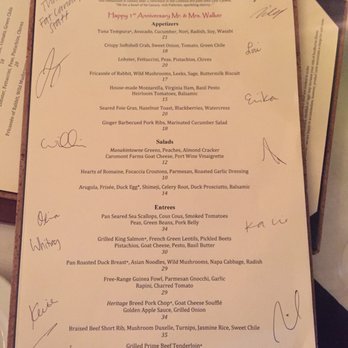 Happy 1st Anniversary Mr & Mrs. Walker
Appetizers
Tuna Tempura*, Avocado, Cucumber, Nori, Radish, Soy, Wasabi
21
Crispy Softshell Crab, Sweet Onion, Tomato, Green Chile
18
Lobster, Fettuccini, Peas, Pistachios, Chives
20
Fricassée of Rabbit, Wild Mushrooms, Leeks, Sage, Buttermilk Biscuit
17
House-made Mozzarella, Virginia Ham, Basil Pesto
Heirloom Tomatoes, Balsamic
15
Seared Foie Gras, Hazelnut Toast, Blackberries, Watercress
20
Ginger Barbecued Pork Ribs, Marinated Cucumber Salad
18
Salads
Monokintowne Greens, Peaches, Almond Cracker
Caromont Farms Goat Cheese, Port Wine Vinaigrette
12
Hearts of Romaine, Focaccia Croutons, Parmesan, Roasted Garlic Dressing
10
Arugula, Frisée, Duck Egg*, Shimeji, Celery Root, Duck Prosciutto, Balsamic
14
Entrées
Pan Seared Sea Scallops, Cous Cous, Smoked Tomatoes
Peas, Green Beans, Pork Belly
34
Grilled King Salmon*, French Green Lentils, Pickled Beets
Pistachios, Goat Cheese, Pesto, Basil Butter
30
Pan Roasted Duck Breast*, Asian Noodles, Wild Mushrooms, Napa Cabbage, Radish
29
Free-Range Guinea Fowl, Parmesan Gnocchi, Garlic
Rapini, Charred Tomato
29
Heritage Breed Pork Chop*, Goat Cheese Soufflé
Golden Apple Sauce, Grilled Onion
34
Braised Beef Short Rib, Mushroom Duxelle, Turnips, Jasmine Rice, Sweet Chile
35
Grilled Prime Beef Tenderloin*
Lori
Erika
Whitney